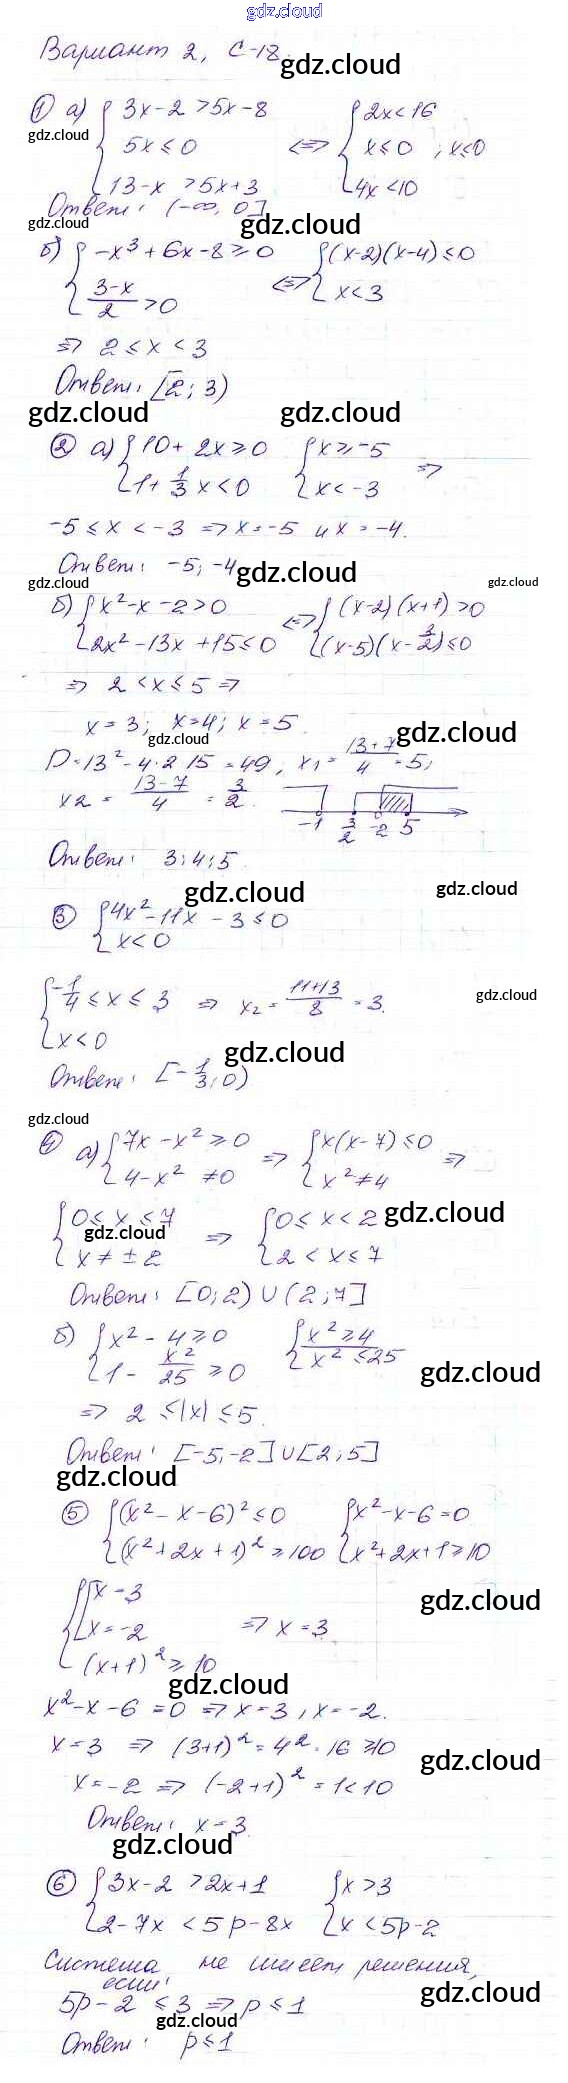 gdz.cloud
Вариант 2, С-18.
gdz.cloud
① а) { 3x-2 > 5x-8 { 2x < 16
gdz.cloud
5x ≤ 0 <=> x ≤ 0 , x≤0
13-x > 5x+3 4x < 10
Ответ: (-∞, 0]
gdz.cloud gdz.cloud
б) { -x³ + 6x - 8 ≥ 0 <=> { (x-2)(x-4) ≤ 0
(3-x)/2 > 0 x < 3
=> 2 ≤ x < 3
Ответ: [2; 3)
gdz.cloud gdz.cloud
② а) { 10 + 2x ≥ 0 { x ≥ -5 =>
1 + 1/3 x < 0 x < -3
-5 ≤ x < -3 => x = -5 и x = -4.
Ответ: -5; -4
gdz.cloud gdz.cloud gdz.cloud
б) { x² - x - 2 > 0 <=> { (x-2)(x+1) > 0
2x² - 13x + 15 ≤ 0 (x-5)(x - 3/2) ≤ 0
=> 2 < x ≤ 5 =>
x = 3; x = 4; x = 5
gdz.cloud gdz.cloud
D = 13² - 4·2 15 = 49, x₁ = (13+7)/4 = 5;
x2 = (13-7)/4 = 3/2.
-1 3/2 -2 5
Ответ: 3; 4; 5
gdz.cloud gdz.cloud
③ { 4x² - 11x - 3 ≤ 0
x < 0
{ -1/4 ≤ x ≤ 3 => x₂ = (11+13)/8 = 3.
gdz.cloud
x < 0
gdz.cloud
Ответ: [-1/3; 0)
gdz.cloud
④ а) { 7x - x² ≥ 0 => { x(x-7) ≤ 0 =>
4 - x² ≠ 0 x² ≠ 4
{ 0 ≤ x ≤ 7 => { 0 ≤ x < 2
gdz.cloud gdz.cloud
x ≠ ± 2 2 < x ≤ 7
Ответ: [0; 2) ∪ (2; 7]
б) { x² - 4 ≥ 0 { x² ≥ 4
1 - x²/25 ≥ 0 x² ≤ 25
gdz.cloud
=> 2 ≤ |x| ≤ 5.
Ответ: [-5; -2] ∪ [2; 5]
gdz.cloud
⑤ { (x² - x - 6)² ≤ 0 { x² - x - 6 = 0
(x² + 2x + 1)² ≥ 100 x² + 2x + 1 ≥ 10
{ [ x = 3
gdz.cloud
x = -2 => x = 3
(x+1)² ≥ 10
gdz.cloud
x² - x - 6 = 0 => x = 3, x = -2.
x = 3 => (3+1)² = 4² = 16 ≥ 10
gdz.cloud
x = -2 => (-2+1)² = 1 < 10
Ответ: x = 3
gdz.cloud
⑥ { 3x - 2 > 2x + 1 { x > 3
2 - 7x < 5p - 8x x < 5p - 2
Система не имеет решения,
если:
gdz.cloud
5p - 2 ≤ 3 => p ≤ 1
gdz.cloud
Ответ: p ≤ 1
gdz.cloud